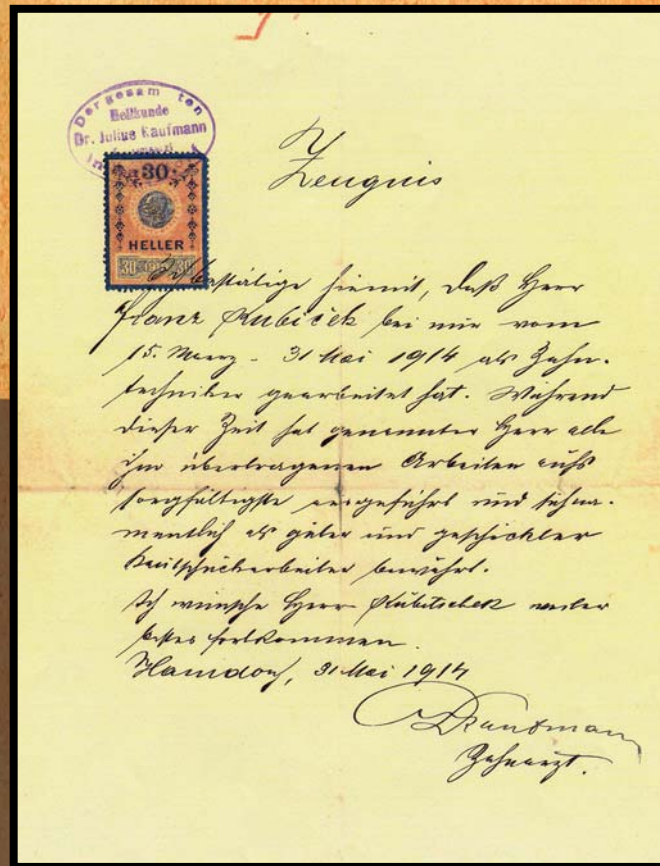 Der gesam ten
Heilkunde
Dr. Julius Kaufmann
30
HELLER
30 30
Zeugnis
Ich bestätige hiemit, daß Herr
Franz Kubiček bei mir vom
15. Maerz - 31 Mai 1914 als Zahn-
techniker gearbeitet hat. Während
dieser Zeit hat genannter Herr alle
ihm übertragenen Arbeiten aufs
sorgfältigste ausgeführt und sich na-
mentlich als guter und geschickter
Kautschukarbeiter bewährt.
Ich wünsche Herr Kubitschek weiter
bestes fortkommen.
31 Mai 1914
Kaufmann
Zahnarzt.